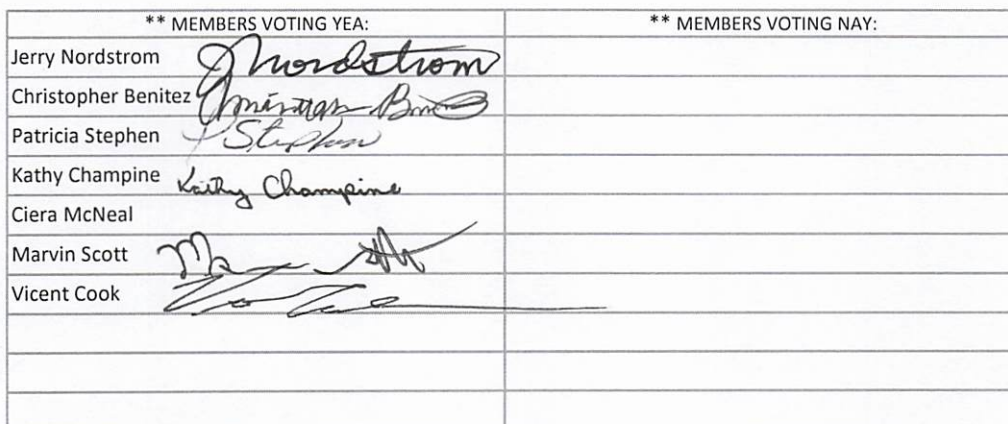 ** MEMBERS VOTING YEA: ** MEMBERS VOTING NAY:
Jerry Nordstrom JNordstrom
Christopher Benitez
Patricia Stephen P Stephen
Kathy Champine Kathy Champine
Ciera McNeal
Marvin Scott
Vicent Cook